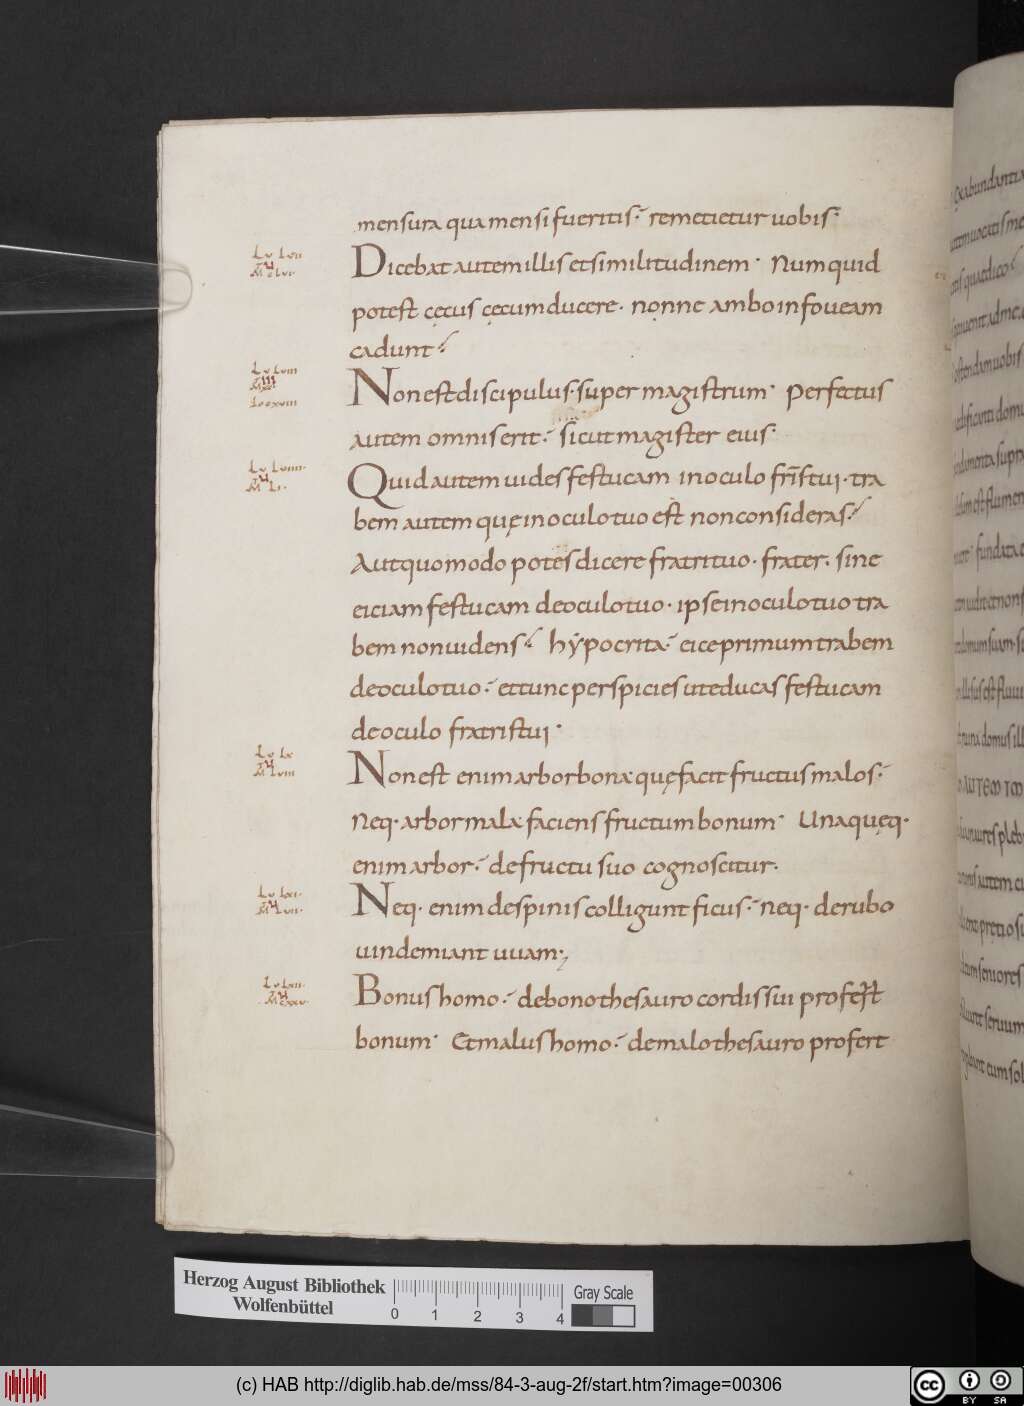 mensura qua mensi fueritis remetietur uobis
Dicebat autem illis et similitudinem · Numquid
potest cęcus cęcum ducere · nonne ambo in foueam
cadunt
Non est discipulus · super magistrum · Perfectus
autem omnis erit · sicut magister eius ·
Quid autem uides festucam in oculo fr̄is tui · tra
bem autem quę in oculo tuo est non consideras
Aut quomodo potes dicere fratri tuo · frater · sine
eiciam festucam de oculo tuo · ipse in oculo tuo tra
bem non uidens hẏpocrita · eice primum trabem
de oculo tuo · et tunc perspicies ut educas festucam
de oculo fratris tui ·
Non est enim arbor bona quę facit fructus malos ·
Neq· arbor mala faciens fructum bonum · Unaquęq·
enim arbor · de fructu suo cognoscitur ·
Neq· enim de spinis colligunt ficus · neq· de rubo
uindemiant uuam ·
Bonus homo · de bono thesauro cordis sui profert
bonum · Et malus homo · de malo thesauro profert
Herzog August Bibliothek
Wolfenbüttel
0 1 2 3 4
Gray Scale
(c) HAB http://diglib.hab.de/mss/84-3-aug-2f/start.htm?image=00306
cc BY SA